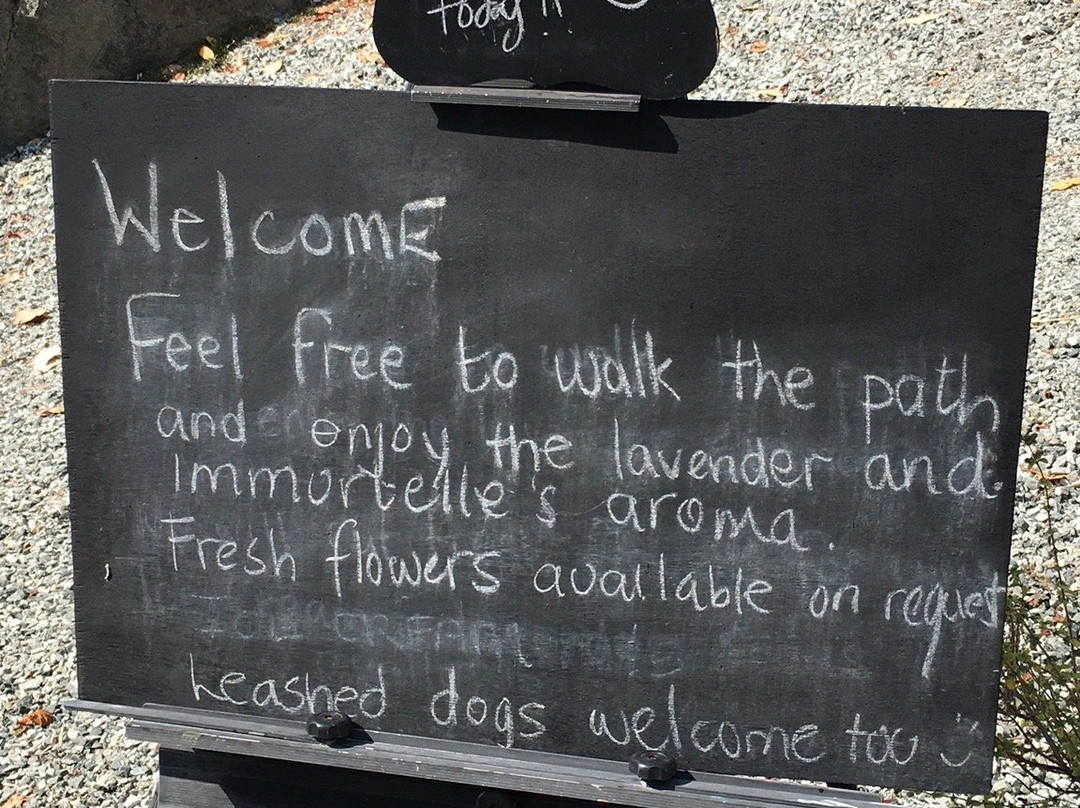 today!!
WelcomE
Feel free to walk the path
and enjoy the lavender and
Immortelle's aroma.
Fresh flowers available on request
Leashed dogs welcome too :)